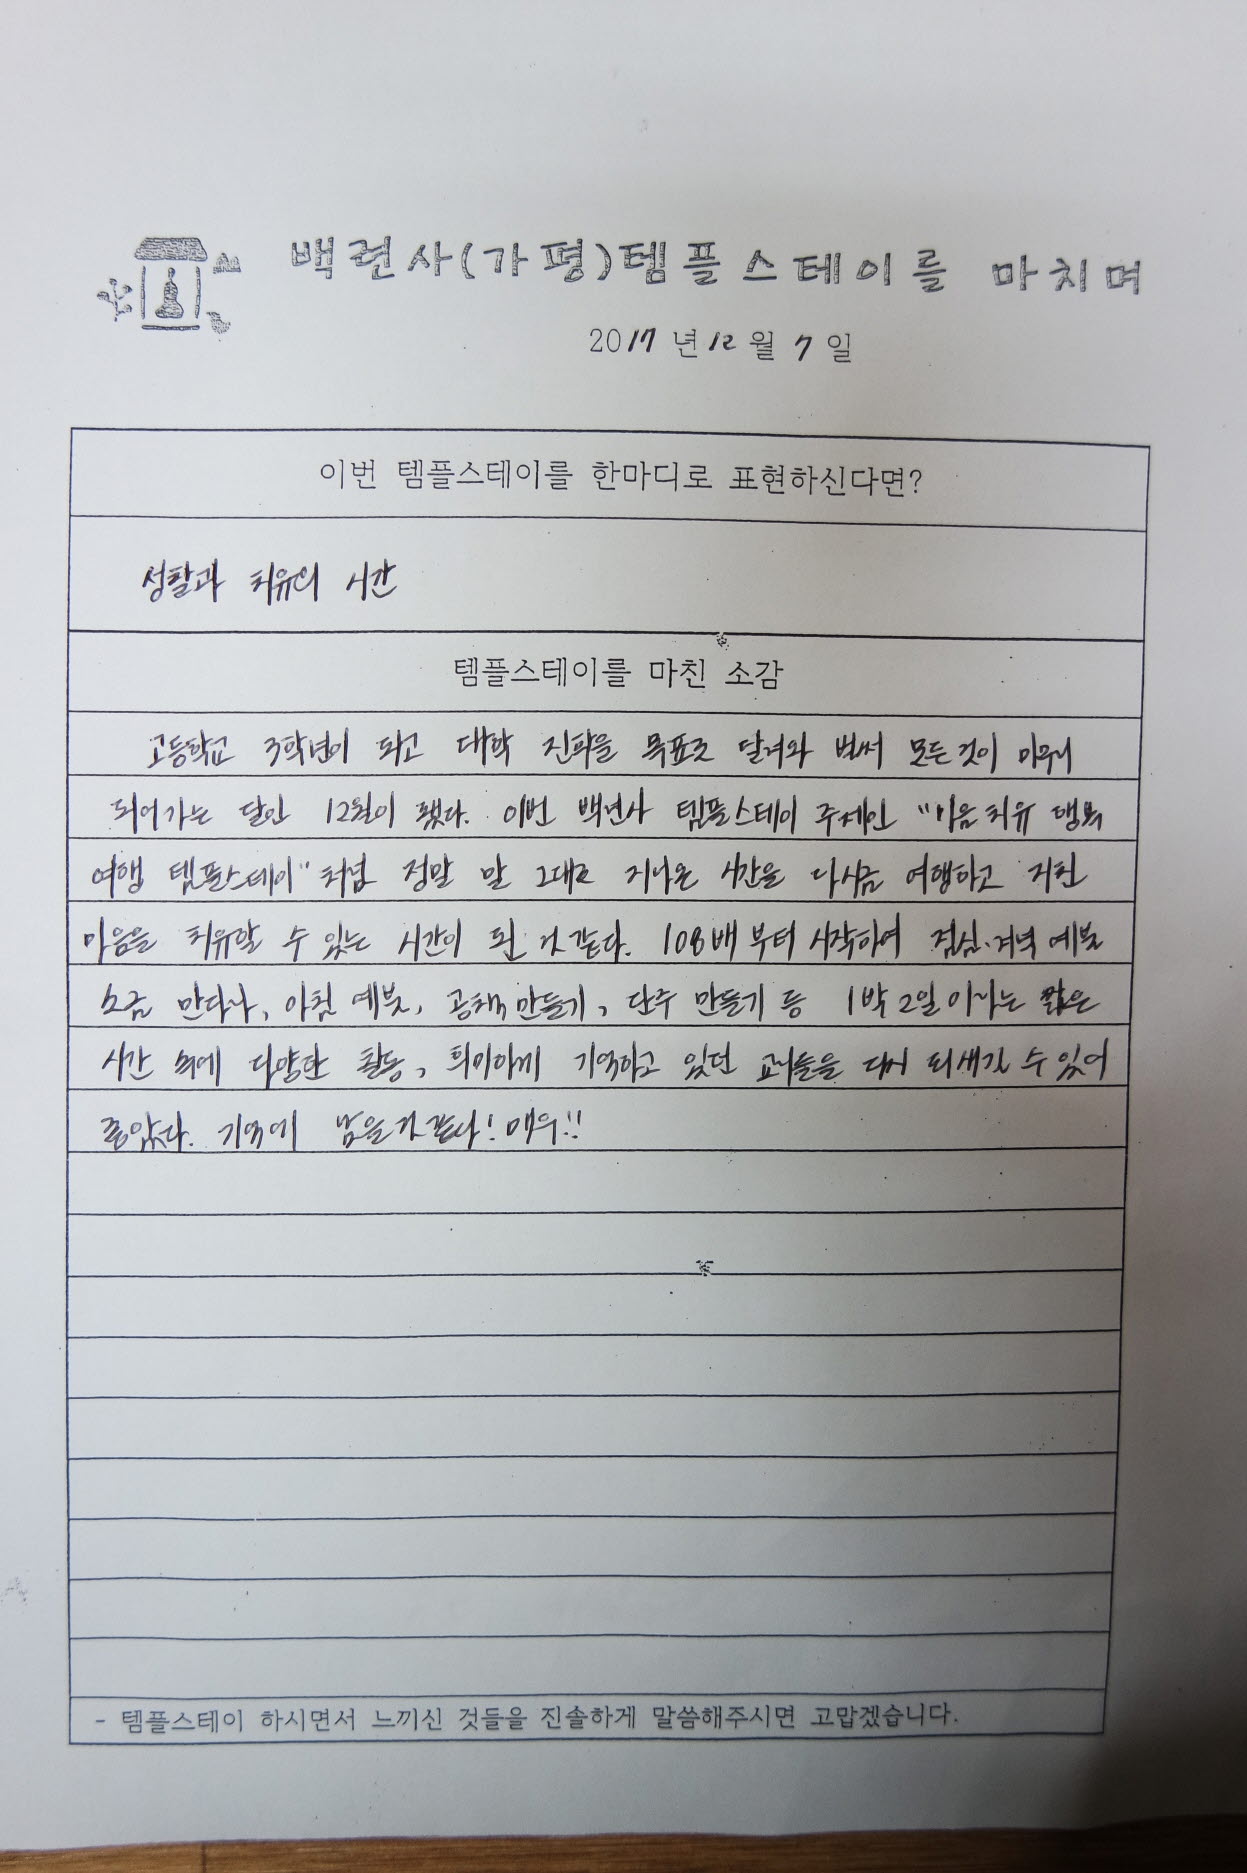 백련사(가평)템플스테이를 마치며
2017년 12월 7일
이번 템플스테이를 한마디로 표현하신다면?
성찰과 치유의 시간
템플스테이를 마친 소감
고등학교 3학년이 되고 대학 진학을 목표로 달려와 벌써 모든 것이 마무리
되어가는 달인 12월이 됐다. 이번 백련사 템플스테이 주제인 "마음치유 행복
여행 템플스테이" 처럼 정말 말 그대로 지나온 시간을 다시금 여행하고 지친
마음을 치유할 수 있는 시간이 된 것 같다. 108배부터 시작하여 점심·저녁 예불
소금 만다라, 아침 예불, 공책 만들기, 단주 만들기 등 1박 2일이라는 짧은
시간 속에 다양한 활동, 희미하게 기억하고 있던 교리들을 다시 되새길 수 있어
좋았다. 기억에 남을것 같다! 매우!!
- 템플스테이 하시면서 느끼신 것들을 진솔하게 말씀해주시면 고맙겠습니다.